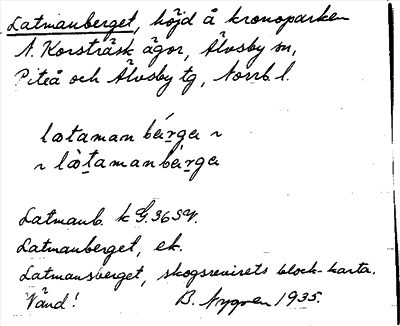 Latmanberget, höjd å kronoparken
N. Korsträsk ägor, Älvsby sn,
Piteå och Älvsby tg, Norrb. l.
lataman bárga ~
~ làtamanbárga
Latmanb. k G. 36 SV.
Latmanberget, ek.
Latmansberget, skogsrevirets block-karta.
Vänd! B. Nygren 1935.